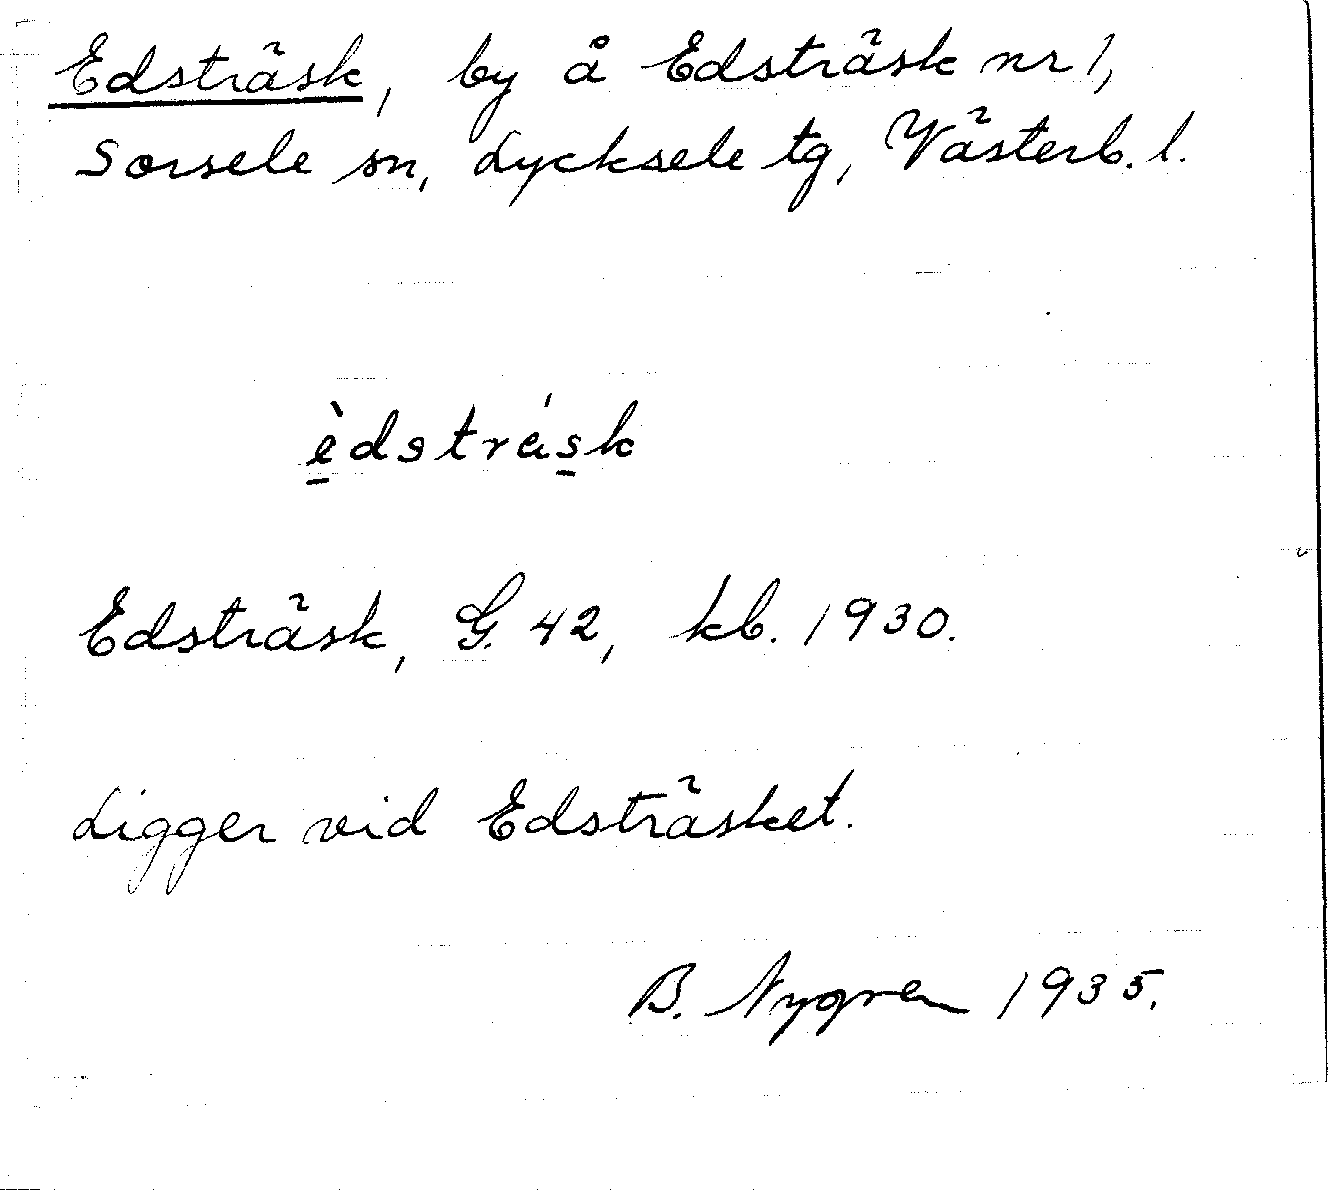 Edsträsk, by å Edsträsk nr 1,
Sorsele sn, Lycksele tg, Västerb. l.
è̱dstrás̱k
Edsträsk, G. 42, kb. 1930.
Ligger vid Edsträsket.
B. Nygren 1935.